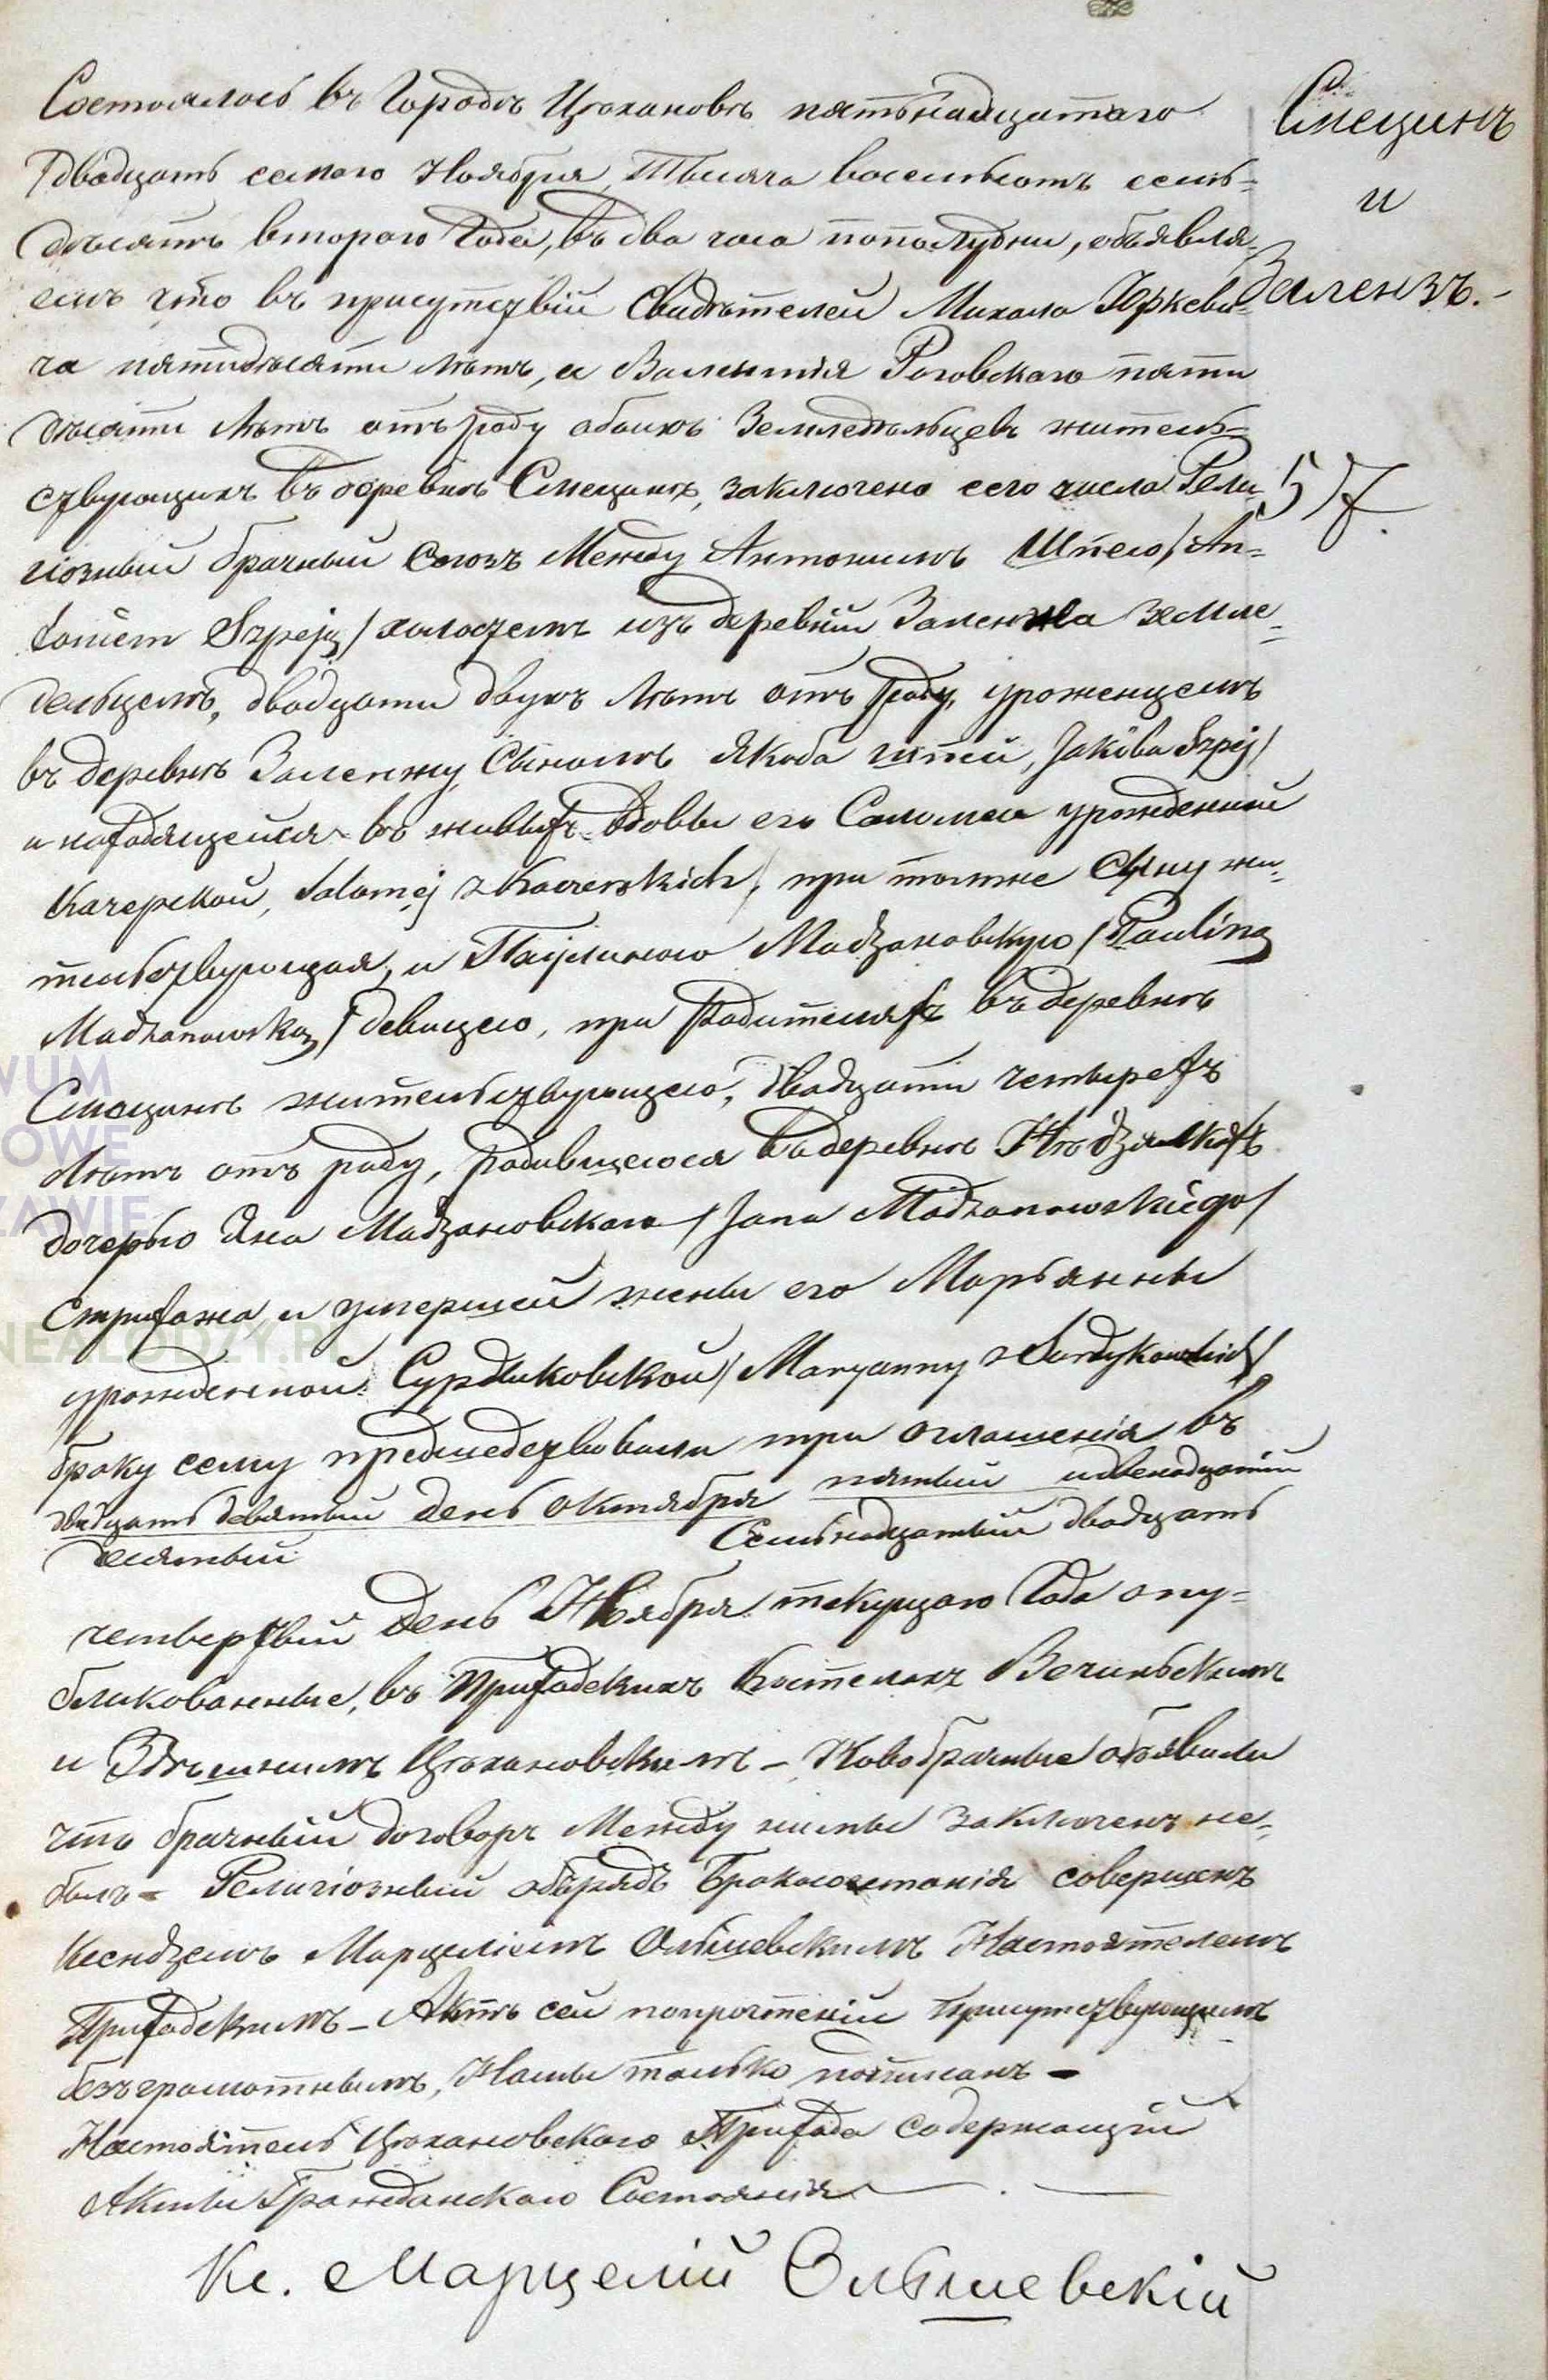 Состоялось въ Городѣ Цѣхановѣ пятьнадцатаго
Смецинъ
/двадцать седмаго Ноября, Тысяча восемьсотъ семь=
и
десятъ втораго Года, въ два часа пополудни, объявля-
емъ что въ присутствій Свидѣтелей Михала Юркеви=
Залензъ.-
ча пятидѣсяти лѣтъ, и Валентія Роговскаго пяти
дѣсяти лѣтъ отъ роду обоихъ Земледѣльцевъ житель=
ствующихъ въ деревнѣ Смецинѣ, заключено сего числа Рели
57.
гіозный брачный Союзъ Между Антонимъ Шпею /An=
tonim Szpeją/ холостемъ изъ деревній Заленжа земле=
дельцемъ, двадцати двухъ лѣтъ отъ роду, уроженцемъ
въ деревнѣ Заленжу, Сыномъ Якоба Шпей, Jakóba Szpej/
и находящейся въ живыхъ вдовы его Саломеи урожденной
Качерской, Salomej z Kaczerskich, при томже Сыну жи=
тельствующая, и Паулиною Мадзановскую /Pauliną
Madzanowską/ девицею, при Родителяхъ въ деревнѣ
Смецинѣ жительствующею, двадцати четырехъ
лѣтъ отъ роду, родившеюся въ деревнѣ Нѣдзялкахъ
дочерью Яна Мадзановскаго /Jana Madzanowskiego/
Стрихажа, и умершей жены его Марьянны
урожденной Сурдыковской /Maryanny z Surdykowskich/
браку сему предшедствовали три оглашенія въ
двадцать девятый день Октября пятый идвенадцатый
десятый Семьнадцатый двадцать
четвертый день Ноября текущаго Года опу=
бликованные, въ Приходскихъ Костелахъ Вечиньскимъ
и Здѣшнимъ Цѣхановскимъ - Новобрачные объявили
что брачный договоръ Между ними заключенъ не=
былъ - Религіозный обърядъ Бракосочетанія совершенъ
Ксендземъ Марцеліемъ Ольшевскимъ Настоятелемъ
Приходскимъ - Актъ сей попрочтеній присутствующимъ
безъграмотнымъ, Нами только подписанъ -
Настоятель Цѣхановскаго Прихода Содержащій
Акты Гражданскаго Состоянія
Кс. Марцелій Ольшевскій